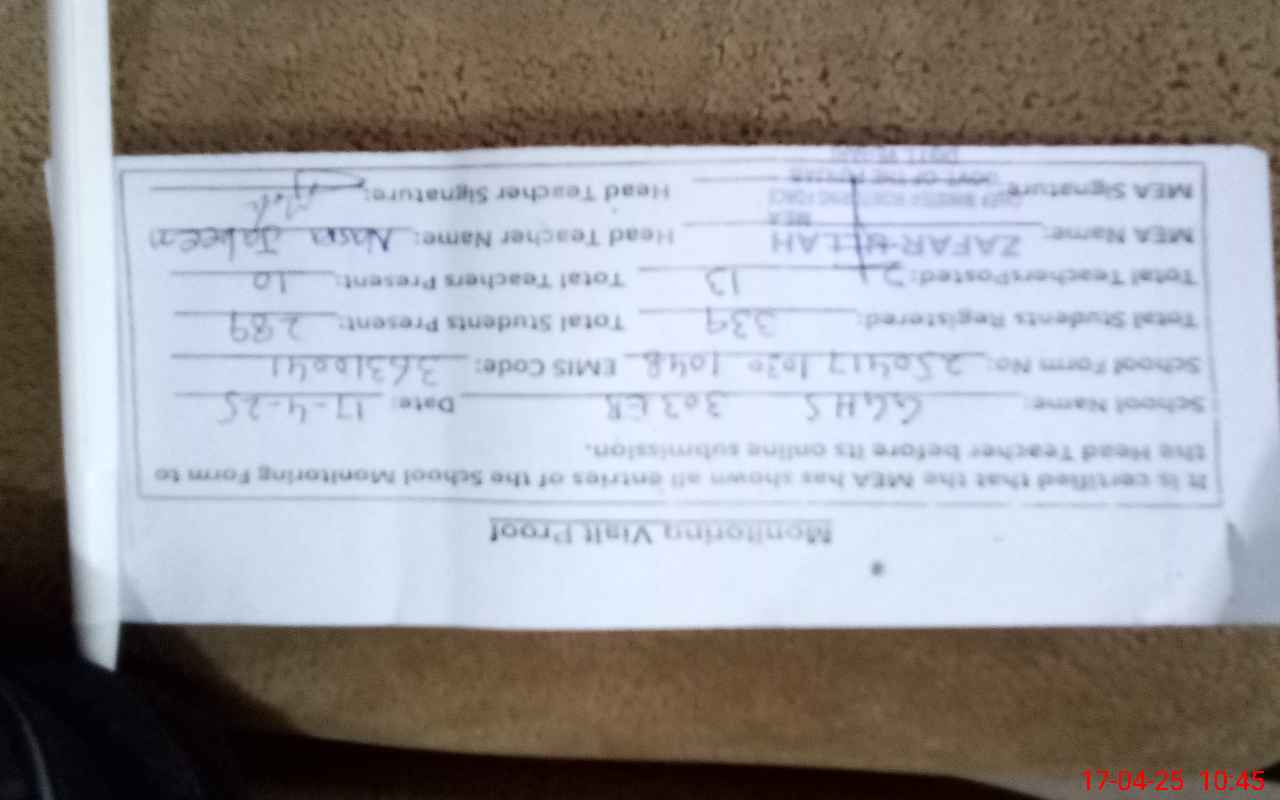 Monitoring Visit Proof
It is certified that the MEA has shown all entries of the School Monitoring Form to
the Head Teacher before its online submission.
School Name: GGHS 303 EB Date: 17-4-25
School Form No: 250417 1030 1048 EMIS Code: 36310041
Total Students Registered: 339 Total Students Present: 289
Total Teachers Posted: 13 Total Teachers Present: 10
MEA Name: ZAFAR ULLAH Head Teacher Name: Jabeen
MEA
MEA Signature: Head Teacher Signature:
GOVT OF THE PUNJAB
17-04-25 10:45